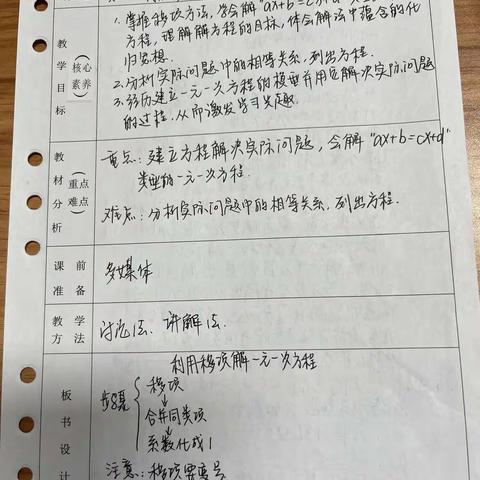 1. 掌握移项方法,学会解"ax+b=cx+d"类
方程,理解解方程的目标,体会解法中蕴含的化
归思想.
2.分析实际问题中的相等关系,列出方程.
3.经历建立一元一次方程的模型并用它解决实际问题
的过程,从而激发学习兴趣.
教学目标
(核心素养)
教材分析
(重点难点)
重点:建立方程解决实际问题,会解"ax+b=cx+d"
类型的一元一次方程.
难点:分析实际问题中的相等关系,列出方程.
课前准备
多媒体
教学方法
讨论法、讲解法.
板书设计
利用移项解一元一次方程
步骤
移项
合并同类项
系数化成1
注意:移项要变号